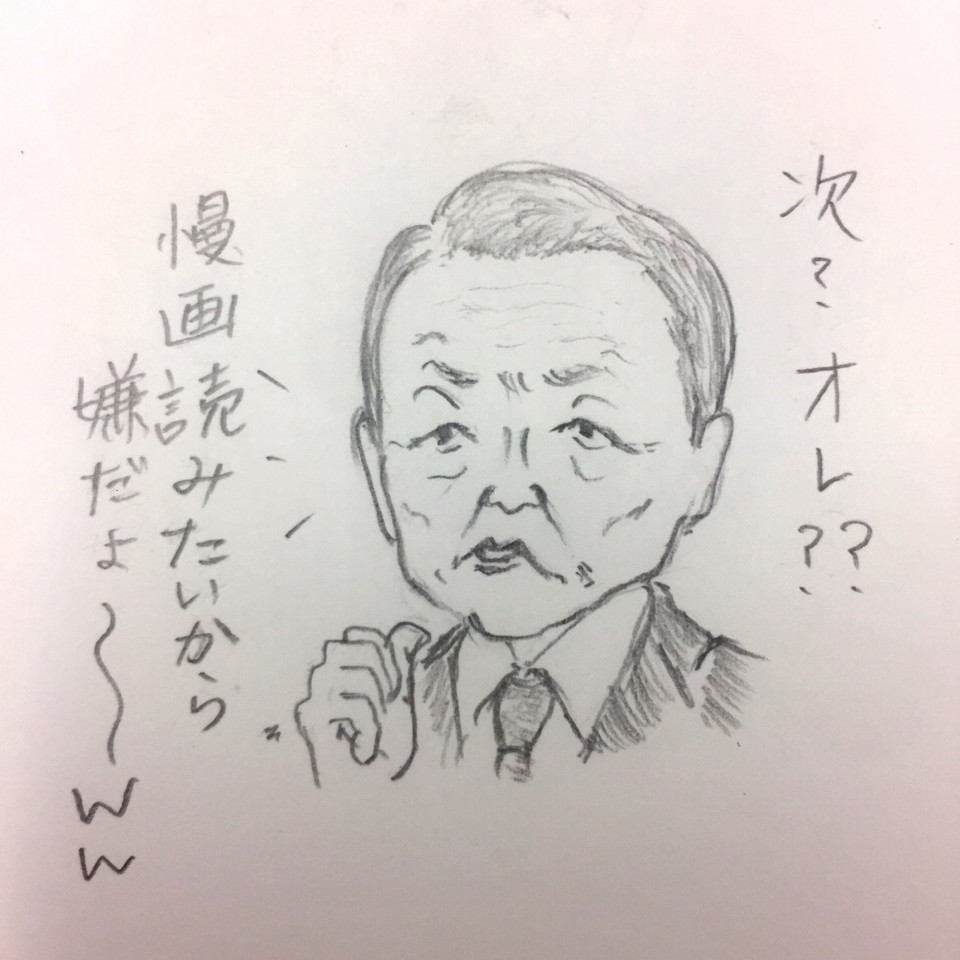 次?オレ??
慢画読みたいから
嫌だよ〜ww